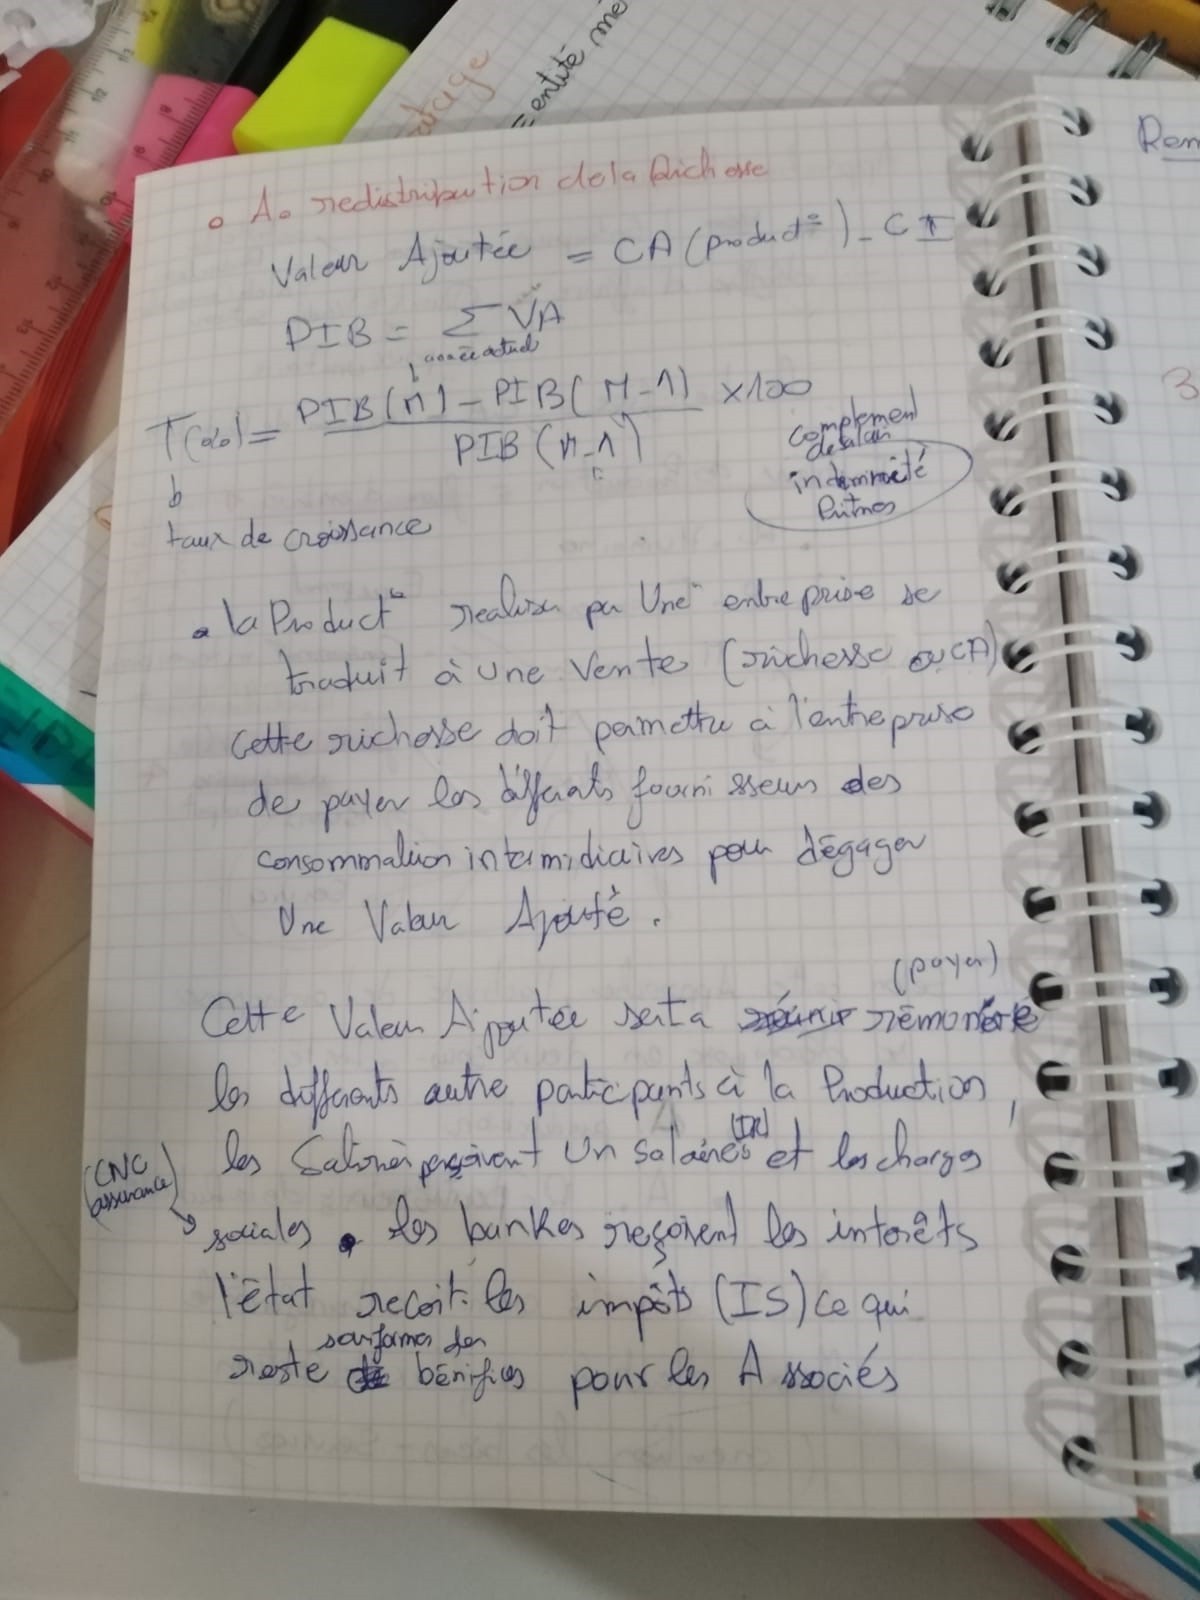 entité mé
• A. redistribution de la Richesse
Valeur Ajoutée = CA (product°) - CI
PIB = Σ VA
année actuel
T(%) = PIB (n) - PIB (n-1) / PIB (n-1) x100
taux de croissance
complement
de salair
indemnité
Primes
• la Product° realiser par Une entreprise se
traduit à une vente (richesse ou CA)
cette richesse doit permettre à l'entreprise
de payer les différents fournisseurs des
consommation intermidiaires pour dégager
Une Valeur Ajouté.
(payer)
Cette Valeur Ajoutée sert a rémunéré
les différents autre participants à la Production,
(IR)
les Salariés perçoivent un salaires et les charges
(CNC
assurance)
sociales. les bankes reçoivent les interêts
l'état recoit les impôts (IS) ce qui
sous formes des
reste bénifices pour les Associés
Rem
3